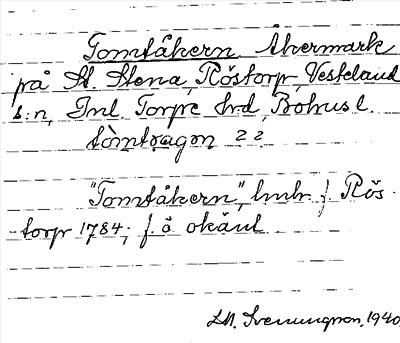 Tomtåkern Åkermark
på St. Stena, Röstorp, Vesteland
s:n, Inl. Torpe hrd, Bohusl.
tòmtragon 22
"Tomtåkern", hmb. f. Rös-
torp 1784; f. ö. okänt.
Sveningson, 1940